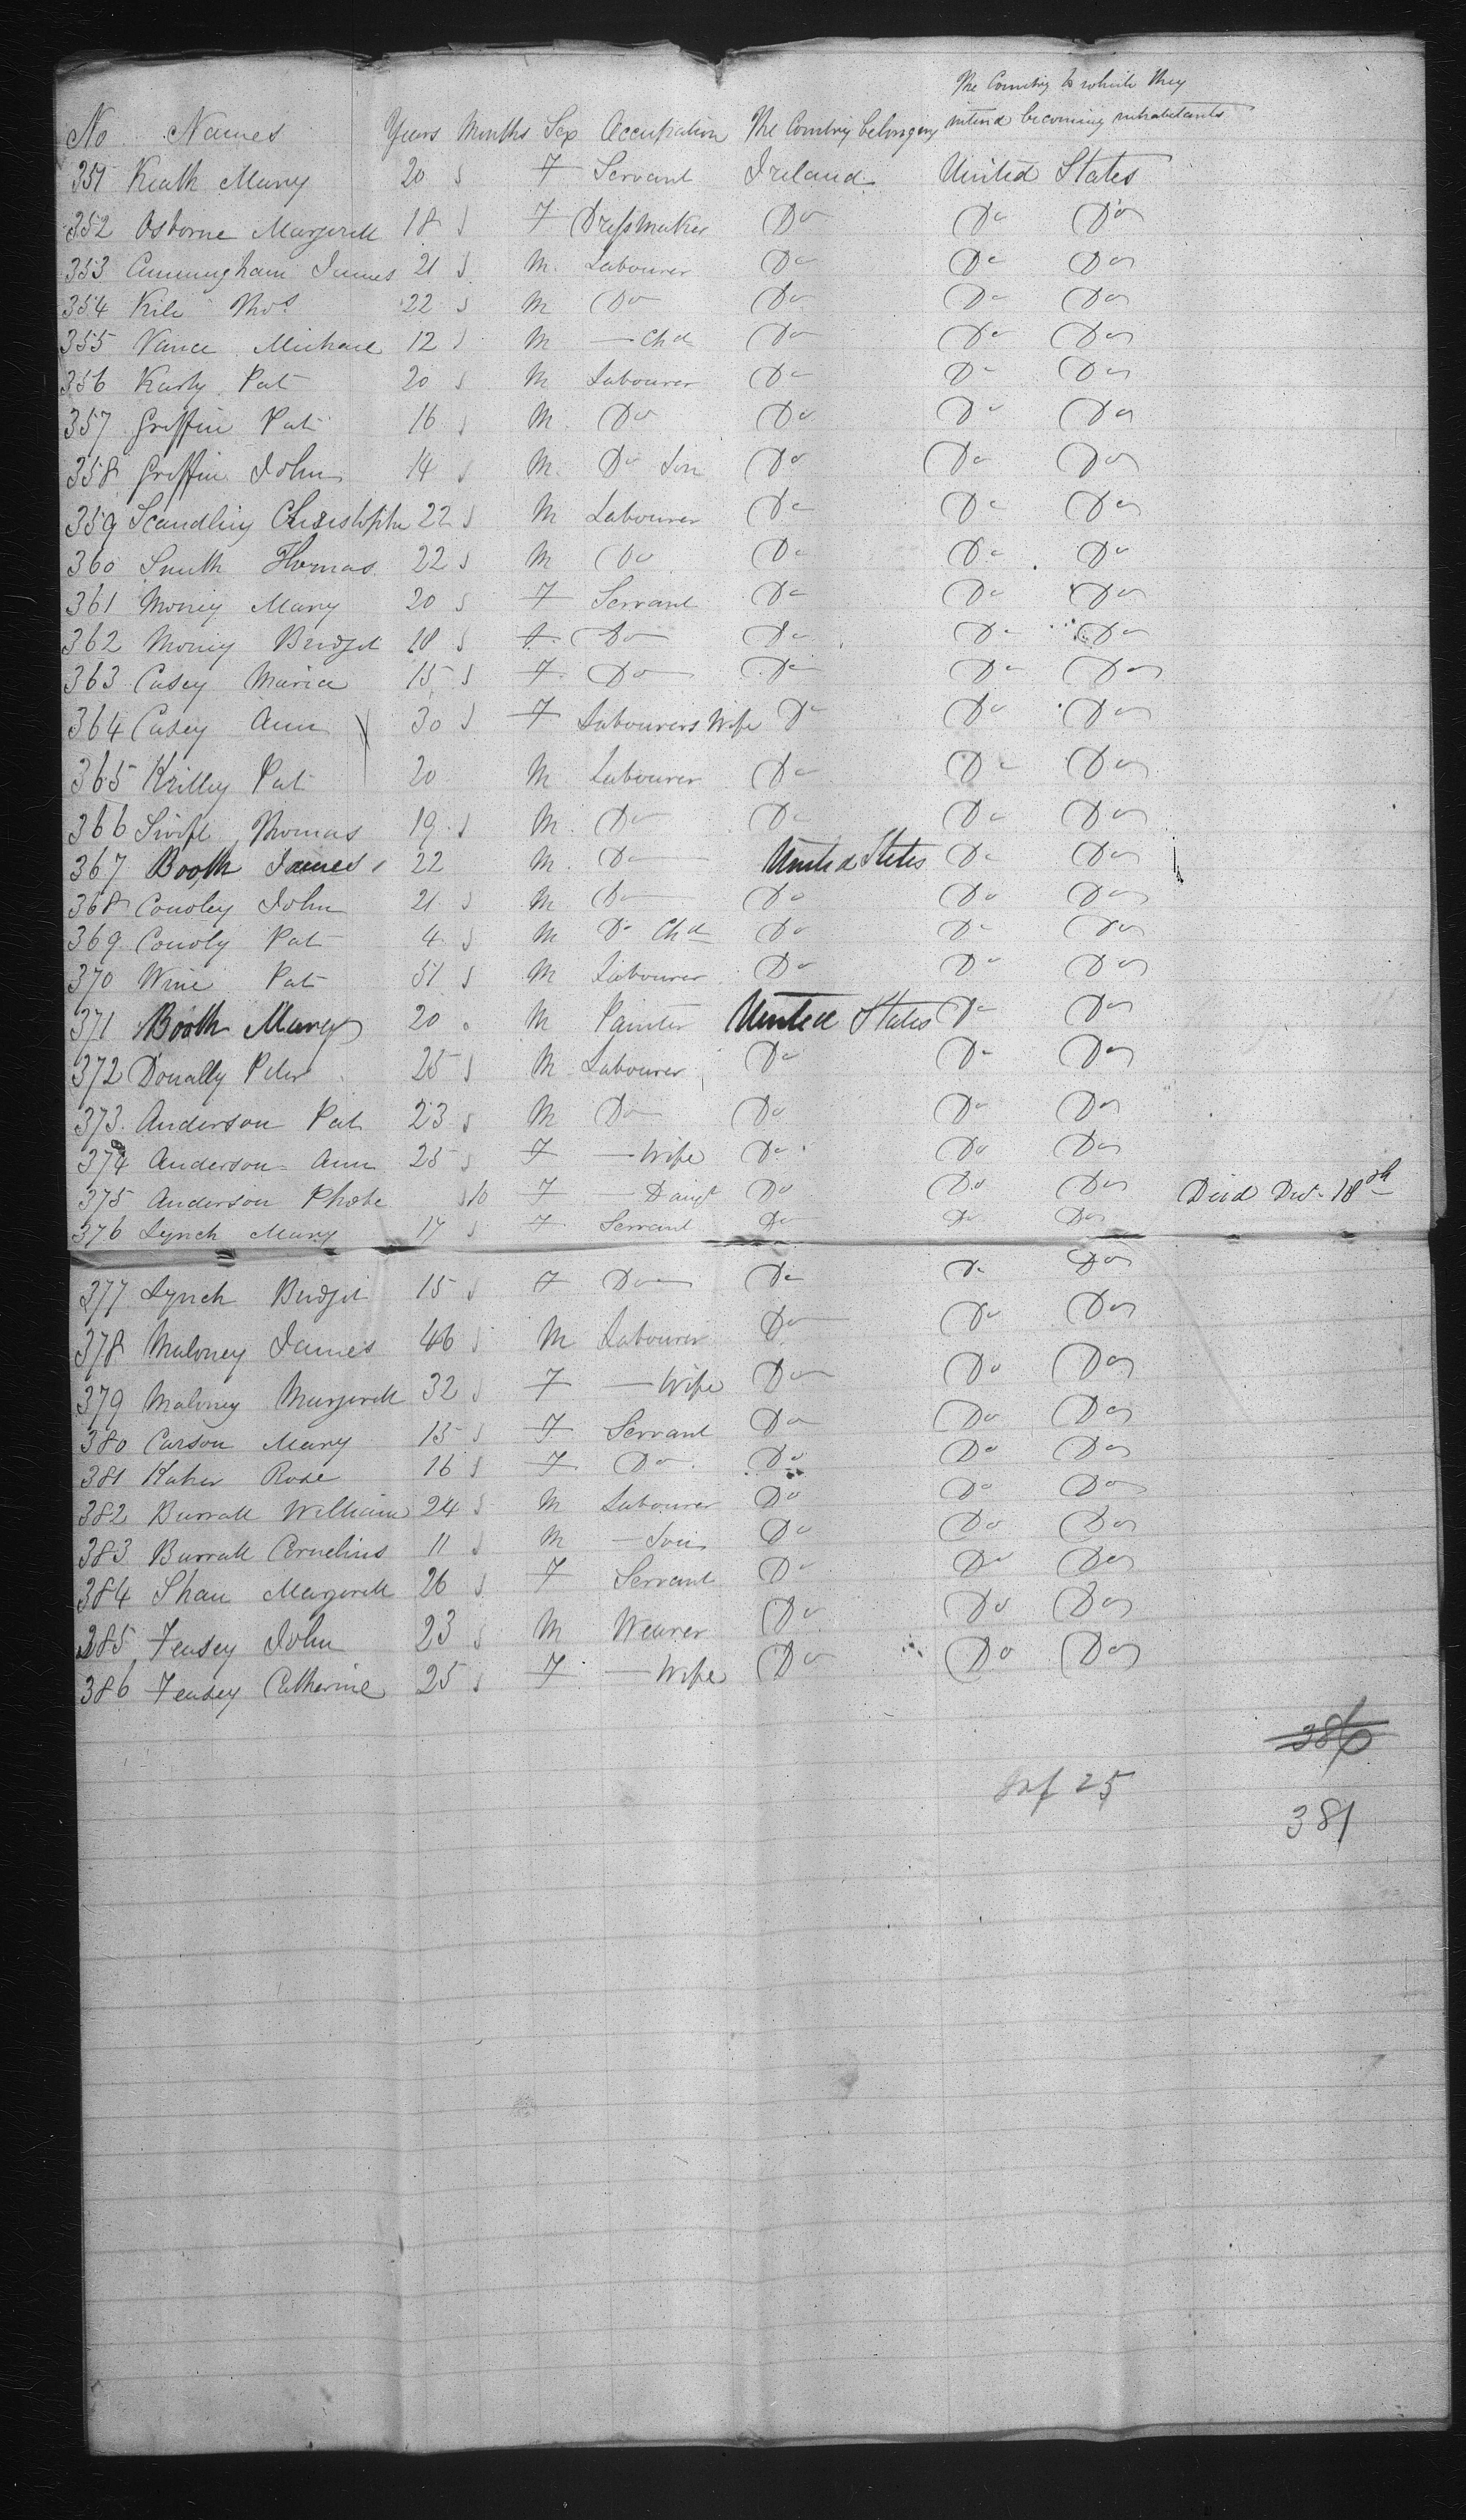 The Country to which they
No Names Years Months Sex Occupation The Country belonging intend becoming inhabitants
351 Keath Mary 20 s F Servant Ireland United States
352 Osborne Margarett 18 s F Dressmaker Do Do Do
353 Cunningham James 21 s M. Labourer Do Do Do
354 Thos 22 s M Do Do Do Do
355 Vance Michael 12 s M — Chd Do Do Do
356 Pat 20 s M Labourer Do Do Do
357 Griffin Pat 16 s M. Do Do Do Do
358 Griffin John 14 s M. Do Son Do Do Do
359 Scandling Christopher 22 s M Labourer Do Do Do
360 Smith Thomas 22 s M Do Do Do Do
361 Money Mary 20 s F Servant Do Do Do
362 Money Bridget 18 s F. Do Do Do Do
363 Casey Maria 15 s F. Do Do Do Do
364 Casey Ann 30 s F Labourers Wife Do Do Do
365 Krilley Pat 20 M Labourer Do Do Do
366 Swift Thomas 19 s M. Do Do Do Do
367 Booth James 22 M. Do United States Do Do
368 Conoley John 21 s M. Do Do Do Do
369 Conoly Pat 4 s M Do Chd Do Do Do
370 Wine Pat 51 s M Labourer Do Do Do
371 Booth Mary 20 M Painter United States Do Do
372 Donally Peter 25 s M Labourer Do Do Do
373 Anderson Pat 23 s M Do Do Do Do
374 Anderson Ann 25 s F — Wife Do Do Do
375 Anderson Phobe s 10 F — Daugt Do Do Do Died Dec. 18th
376 Lynch Mary 17 s F Servant Do Do Do
377 Lynch Bridget 15 s F Do Do Do Do
378 Maloney James 46 s M Labourer Do Do Do
379 Maloney Margarett 32 s F — Wife Do Do Do
380 Carson Mary 15 s F Servant Do Do Do
381 Kaher Rose 16 s F Do Do Do Do
382 Burratt William 24 s M Labourer Do Do Do
383 Burratt Cornelius 11 s M — Son Do Do Do
384 Shau Margarett 26 s F Servant Do Do Do
385 Feasey John 23 s M Weaver Do Do Do
386 Feasey Catherine 25 s F — Wife Do Do Do
386
Inf 25
381